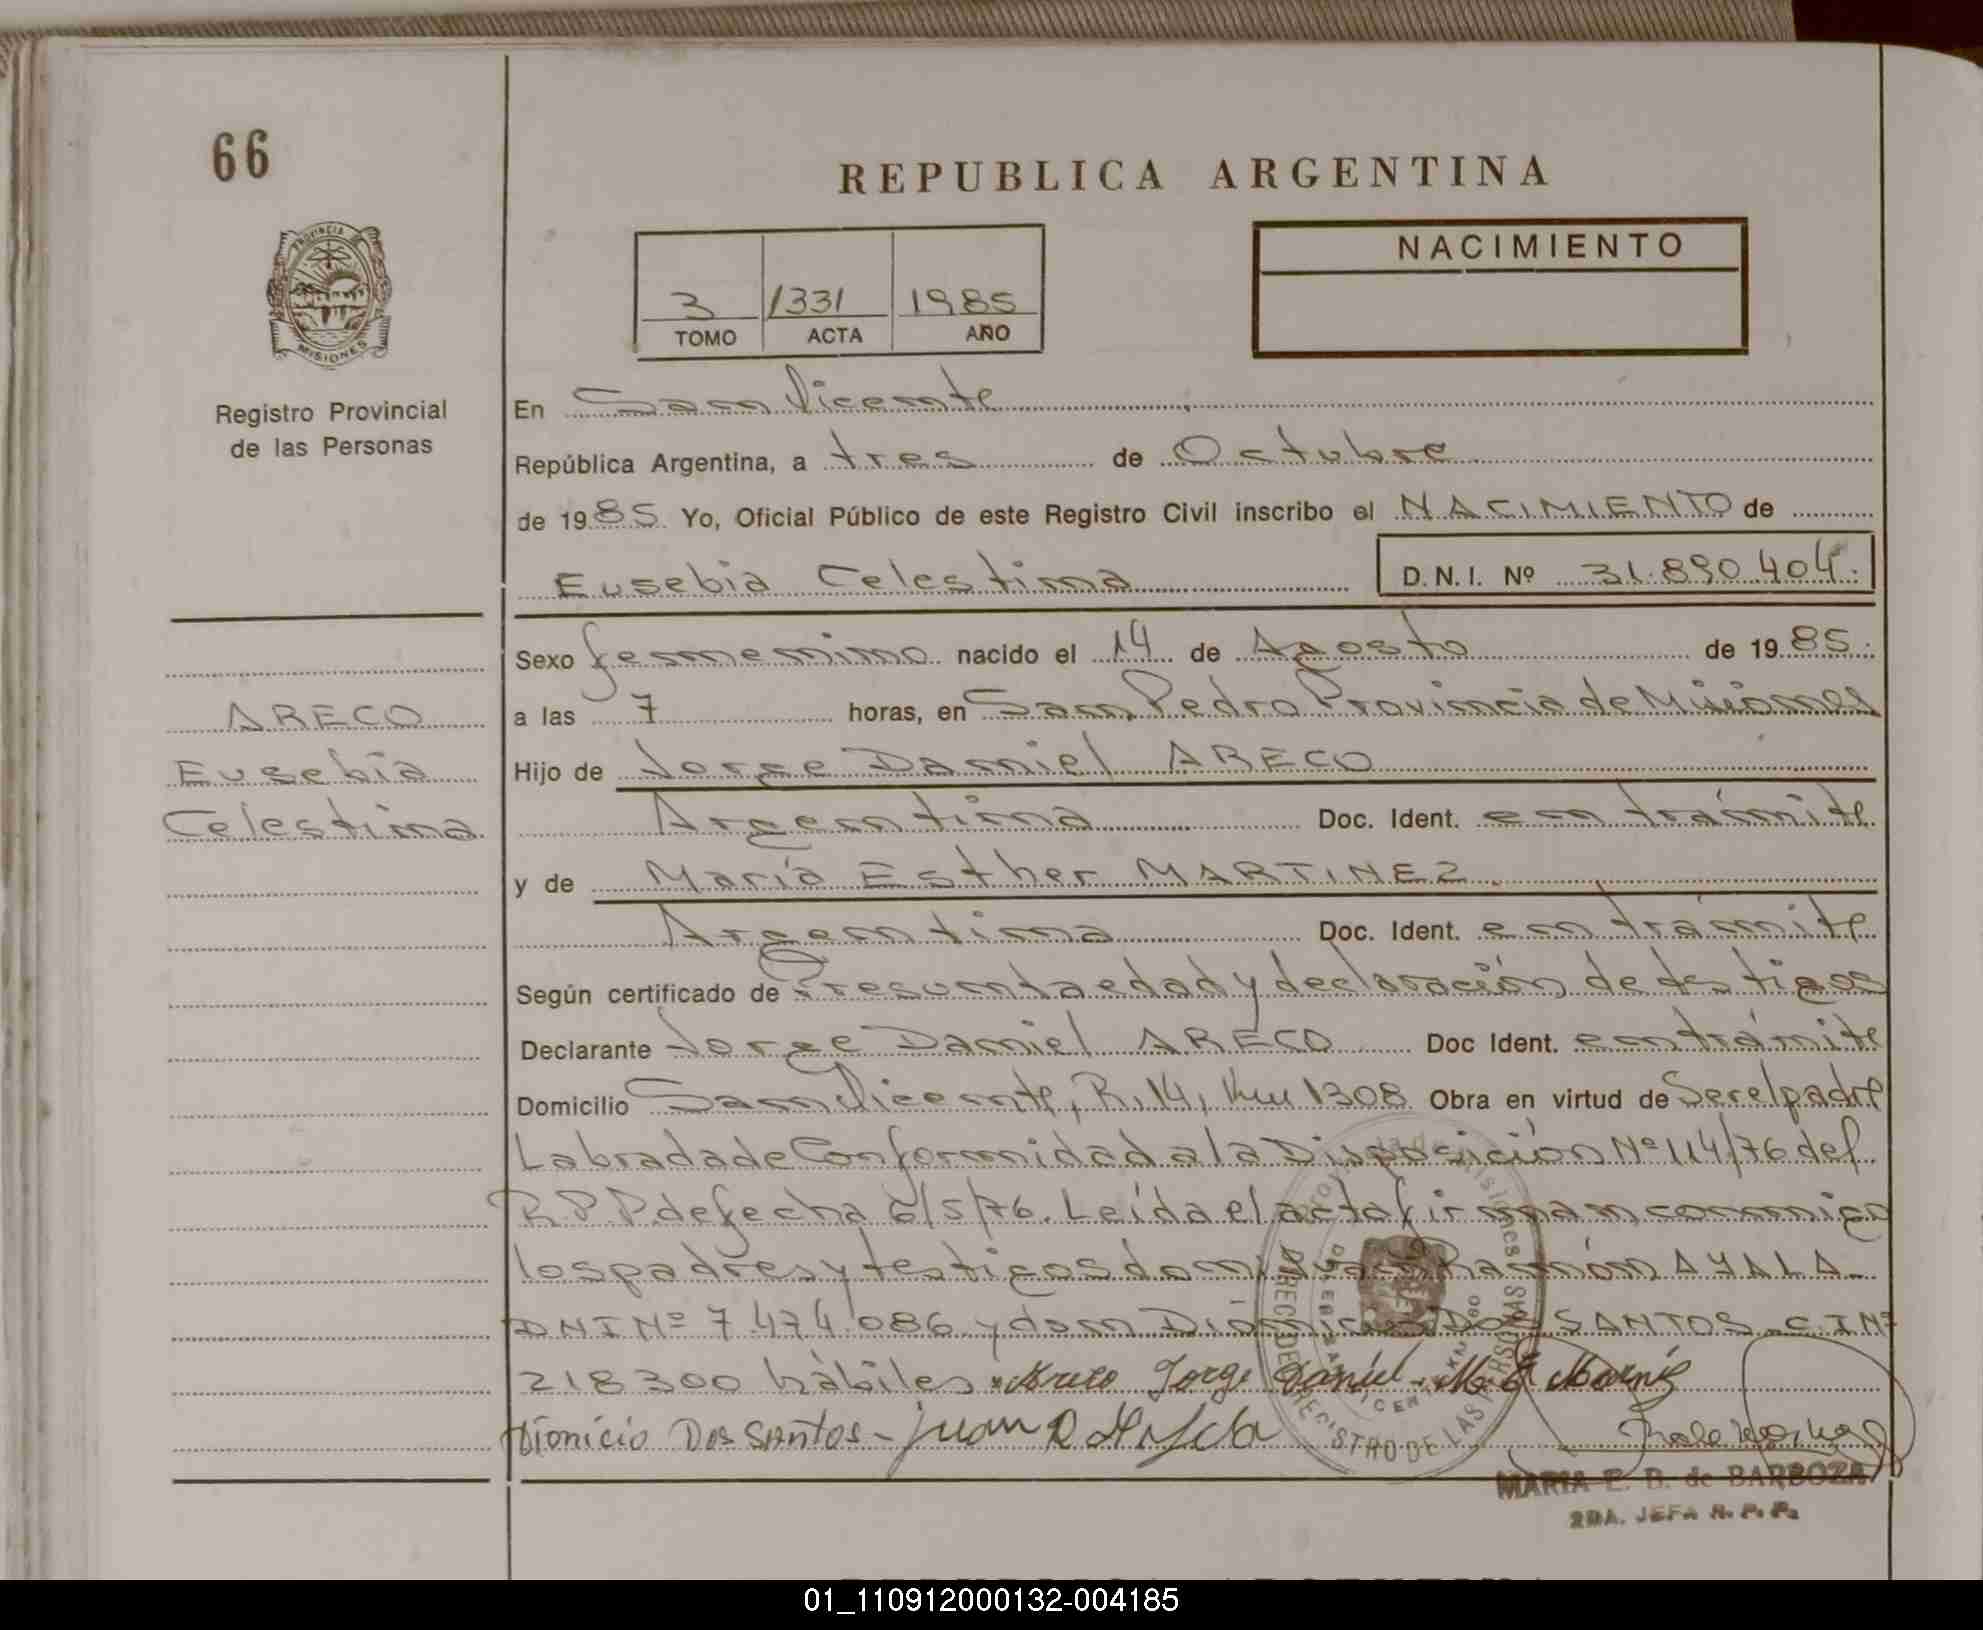 66
REPUBLICA ARGENTINA
PROVINCIA DE
MISIONES
Registro Provincial
de las Personas
3 1331 1985
TOMO ACTA AÑO
NACIMIENTO
En San Vicente
República Argentina, a tres de Octubre
de 1985 Yo, Oficial Público de este Registro Civil inscribo el NACIMIENTO de
Eusebia Celestina D.N.I. Nº 31.890.404.
Sexo femenino nacido el 14 de Agosto de 1985.
a las 7 horas, en San Pedro Provincia de Misiones
ARECO
Eusebia
Celestina
Hijo de Jorge Daniel ARECO
Argentina Doc. Ident. en trámite
y de María Esther MARTINEZ.
Argentina Doc. Ident. en trámite
Según certificado de Presunta edad y declaración de testigos
Declarante Jorge Daniel ARECO Doc Ident. en trámite
Domicilio San Vicente, R. 14, Km 1308 Obra en virtud de Ser el padre
Labrada de Conformidad a la Disposición Nº 114/76 del
R.P.P. de fecha 6/5/76. Leída el acta firman conmigo
los padres y testigos don Juan Ramón AYALA
DNI Nº 7.474.086 y don Dionicio DOS SANTOS C.I Nº
218300 hábiles. Areco Jorge Daniel - M. E.
Dionicio Dos Santos - Juan R Ayala
MARIA E. B. de BARBOZA
2DA. JEFA R. P. P.
01_110912000132-004185